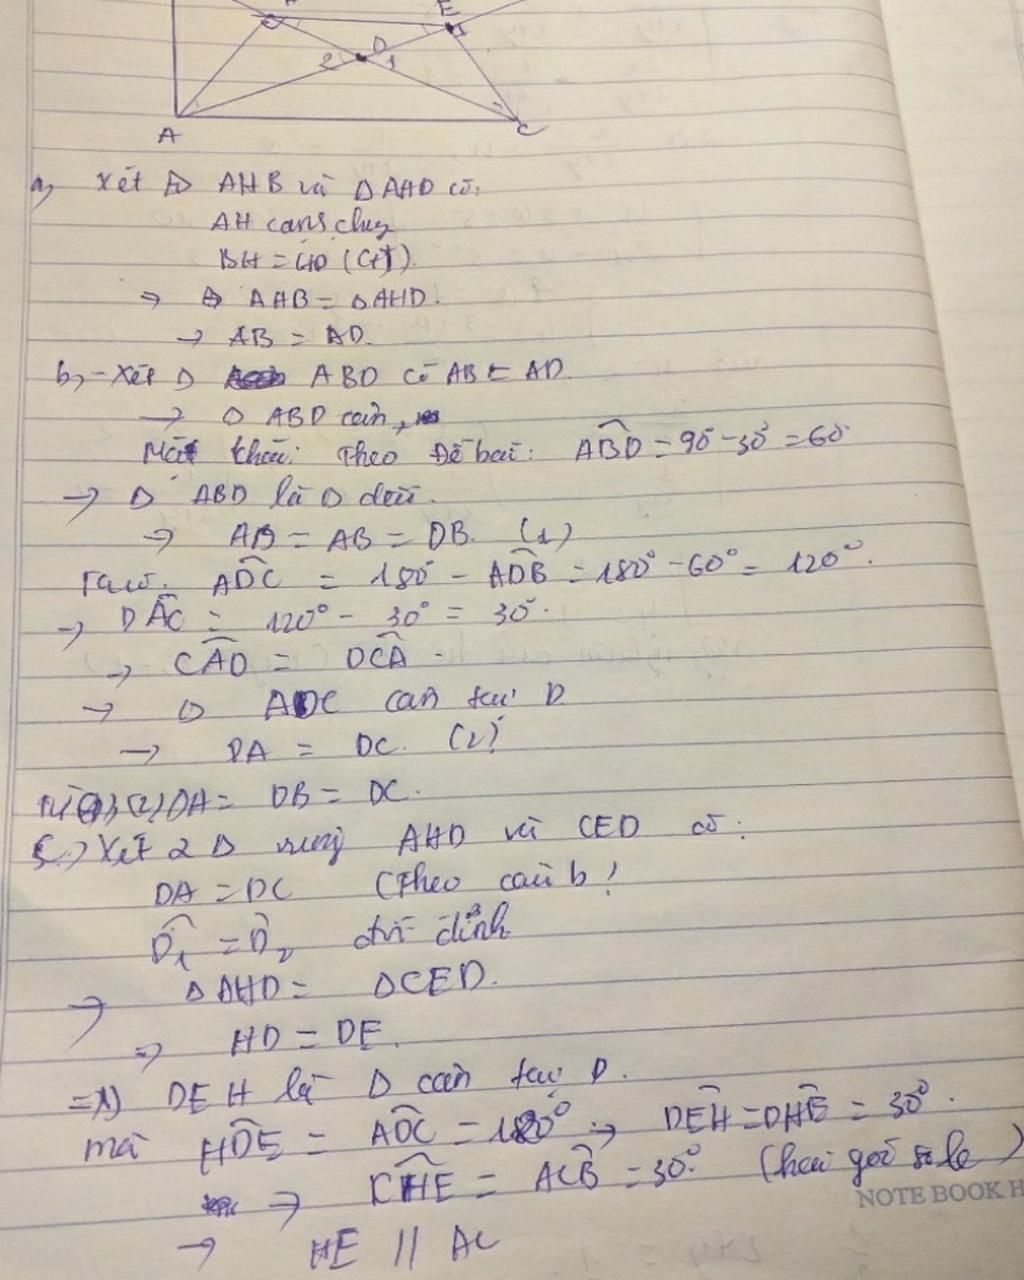 E
D
2 1
A
C
a, Xét Δ AHB và Δ AHD có:
AH cạnh chung
BH = HD (GT)
=> Δ AHB = Δ AHD.
→ AB = AD.
b, - Xét Δ ABD có AB = AD
→ Δ ABD cân,
Mặt khác: Theo Đề bài: ABD = 90° - 30° = 60°
→ Δ ABD là Δ đều.
=> AD = AB = DB. (1)
Ta có. ADC = 180° - ADB = 180° - 60° = 120°.
→ DAC = 120° - 30° = 30°.
→ CAD = DCA
→ Δ ADC cân tại D
→ DA = DC. (2)
Từ (1), (2) DA = DB = DC.
c,) Xét 2 Δ vuông AHD và CED có:
DA = DC (Theo câu b)
D1 = D2 đối đỉnh
→ Δ AHD = ΔCED.
=> HD = DE.
=> Δ DEH là Δ cân tại D.
mà HDE = ADC = 120° → DEH = DHE = 30°.
=> CHE = ACB = 30° (hai góc so le)
→ HE // AC
NOTE BOOK H